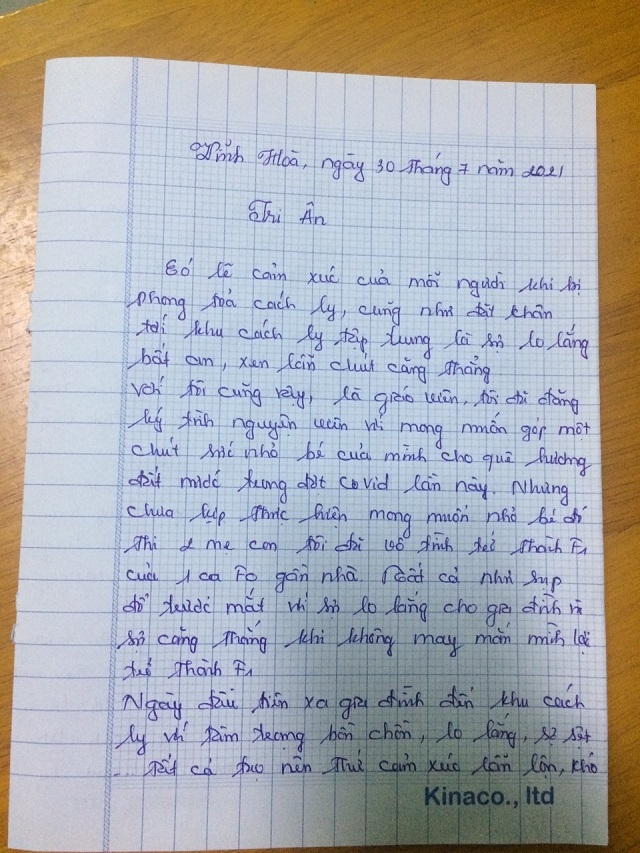 Vĩnh Hoà, ngày 30 tháng 7 năm 2021
Tri Ân
Có lẽ cảm xúc của mỗi người khi bị
phong toả cách ly, cũng như đặt chân
tới khu cách ly tập trung là sự lo lắng
bất an, xen lẫn chút căng thẳng
với tôi cũng vậy, là giáo viên, tôi đã đăng
ký tình nguyện viên với mong muốn góp một
chút sức nhỏ bé của mình cho quê hương
đất nước trong đợt Covid lần này. Nhưng
chưa kịp thực hiện mong muốn nhỏ bé đó
thì 2 mẹ con tôi đã vô tình trở thành F1
của 1 ca F0 gần nhà. Tất cả như sụp
đổ trước mắt vì sự lo lắng cho gia đình và
sự căng thẳng khi không may mắn mình lại
trở thành F1
Ngày đầu tiên xa gia đình đến khu cách
ly với tâm trạng bồn chồn, lo lắng, sợ sệt
... tất cả tạo nên thứ cảm xúc lẫn lộn, khó
Kinaco., ltd